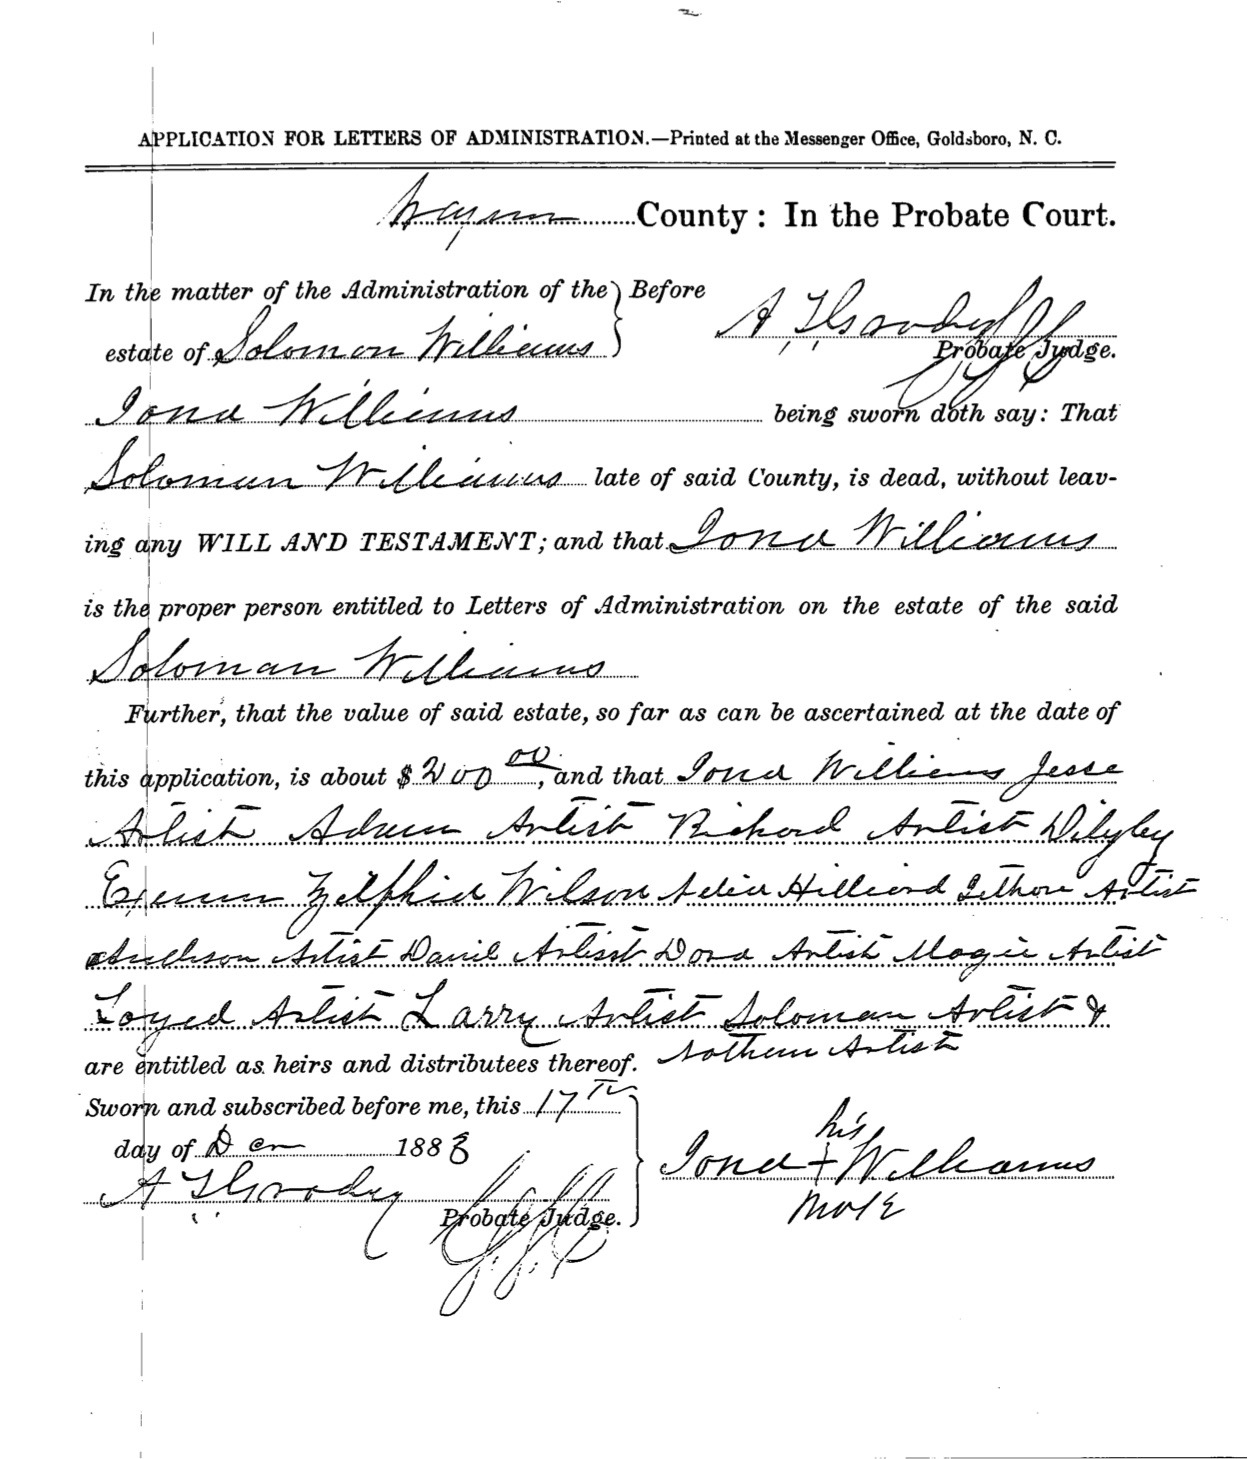 APPLICATION FOR LETTERS OF ADMINISTRATION.—Printed at the Messenger Office, Goldsboro, N. C.
Wayne County: In the Probate Court.
In the matter of the Administration of the } Before
estate of Solomon Williams A T Grady
Probate Judge.
Jona Williams being sworn doth say: That
Soloman Williams late of said County, is dead, without leav-
ing any WILL AND TESTAMENT; and that Jona Williams
is the proper person entitled to Letters of Administration on the estate of the said
Soloman Williams
Further, that the value of said estate, so far as can be ascertained at the date of
this application, is about $200 00, and that Jona Williams Jesse
Artist Adam Artist Richard Artist
Zilphia Wilson Hilliard Artist
Artist Artist Dora Artist Magie Artist
Loyed Artist Larry Artist Soloman Artist &
are entitled as heirs and distributees thereof. Nathern Artist
Sworn and subscribed before me, this 17th
day of 1883
his
Jona + Williams
A T Grady
Probate Judge.